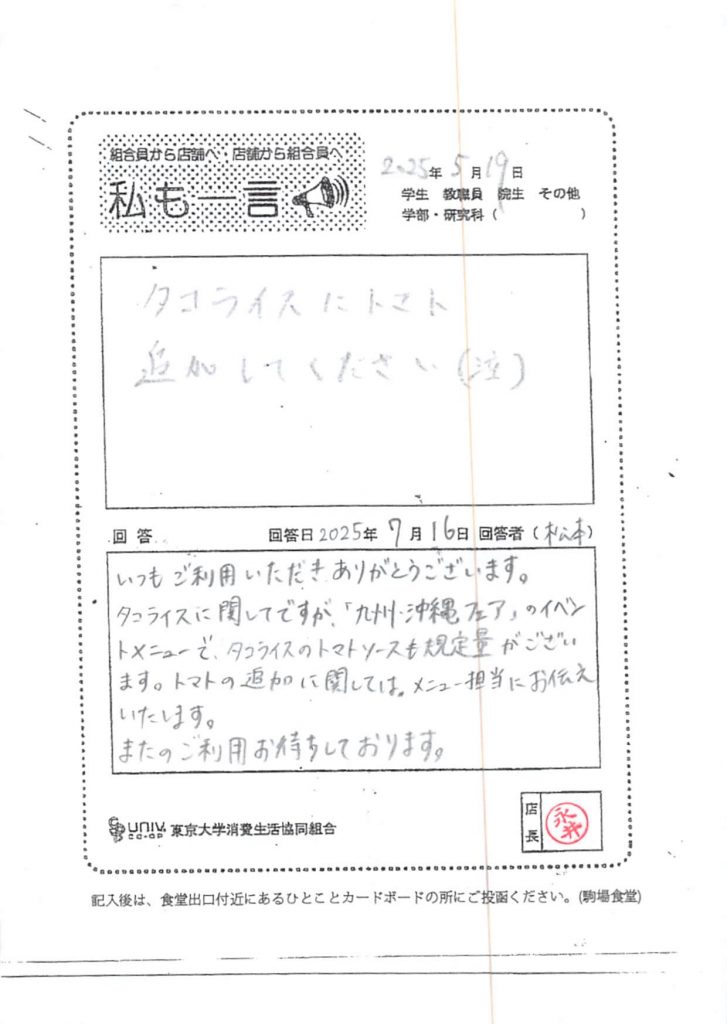 組合員から店舗へ・店舗から組合員へ
私も一言
2025年5月19日
学生 教職員 院生 その他
学部・研究科( )
タコライスにトマト
追加してください(泣)
回答 回答日2025年7月16日 回答者(松本)
いつもご利用いただきありがとうございます。
タコライスに関してですが、「九州・沖縄フェア」のイベン
トメニューで、タコライスのトマトソースも規定量がござい
ます。トマトの追加に関しては、メニュー担当にお伝え
いたします。
またのご利用お待ちしております。
UNIV. CO-OP 東京大学消費生活協同組合
店長
記入後は、食堂出口付近にあるひとことカードボードの所にご投函ください。(駒場食堂)